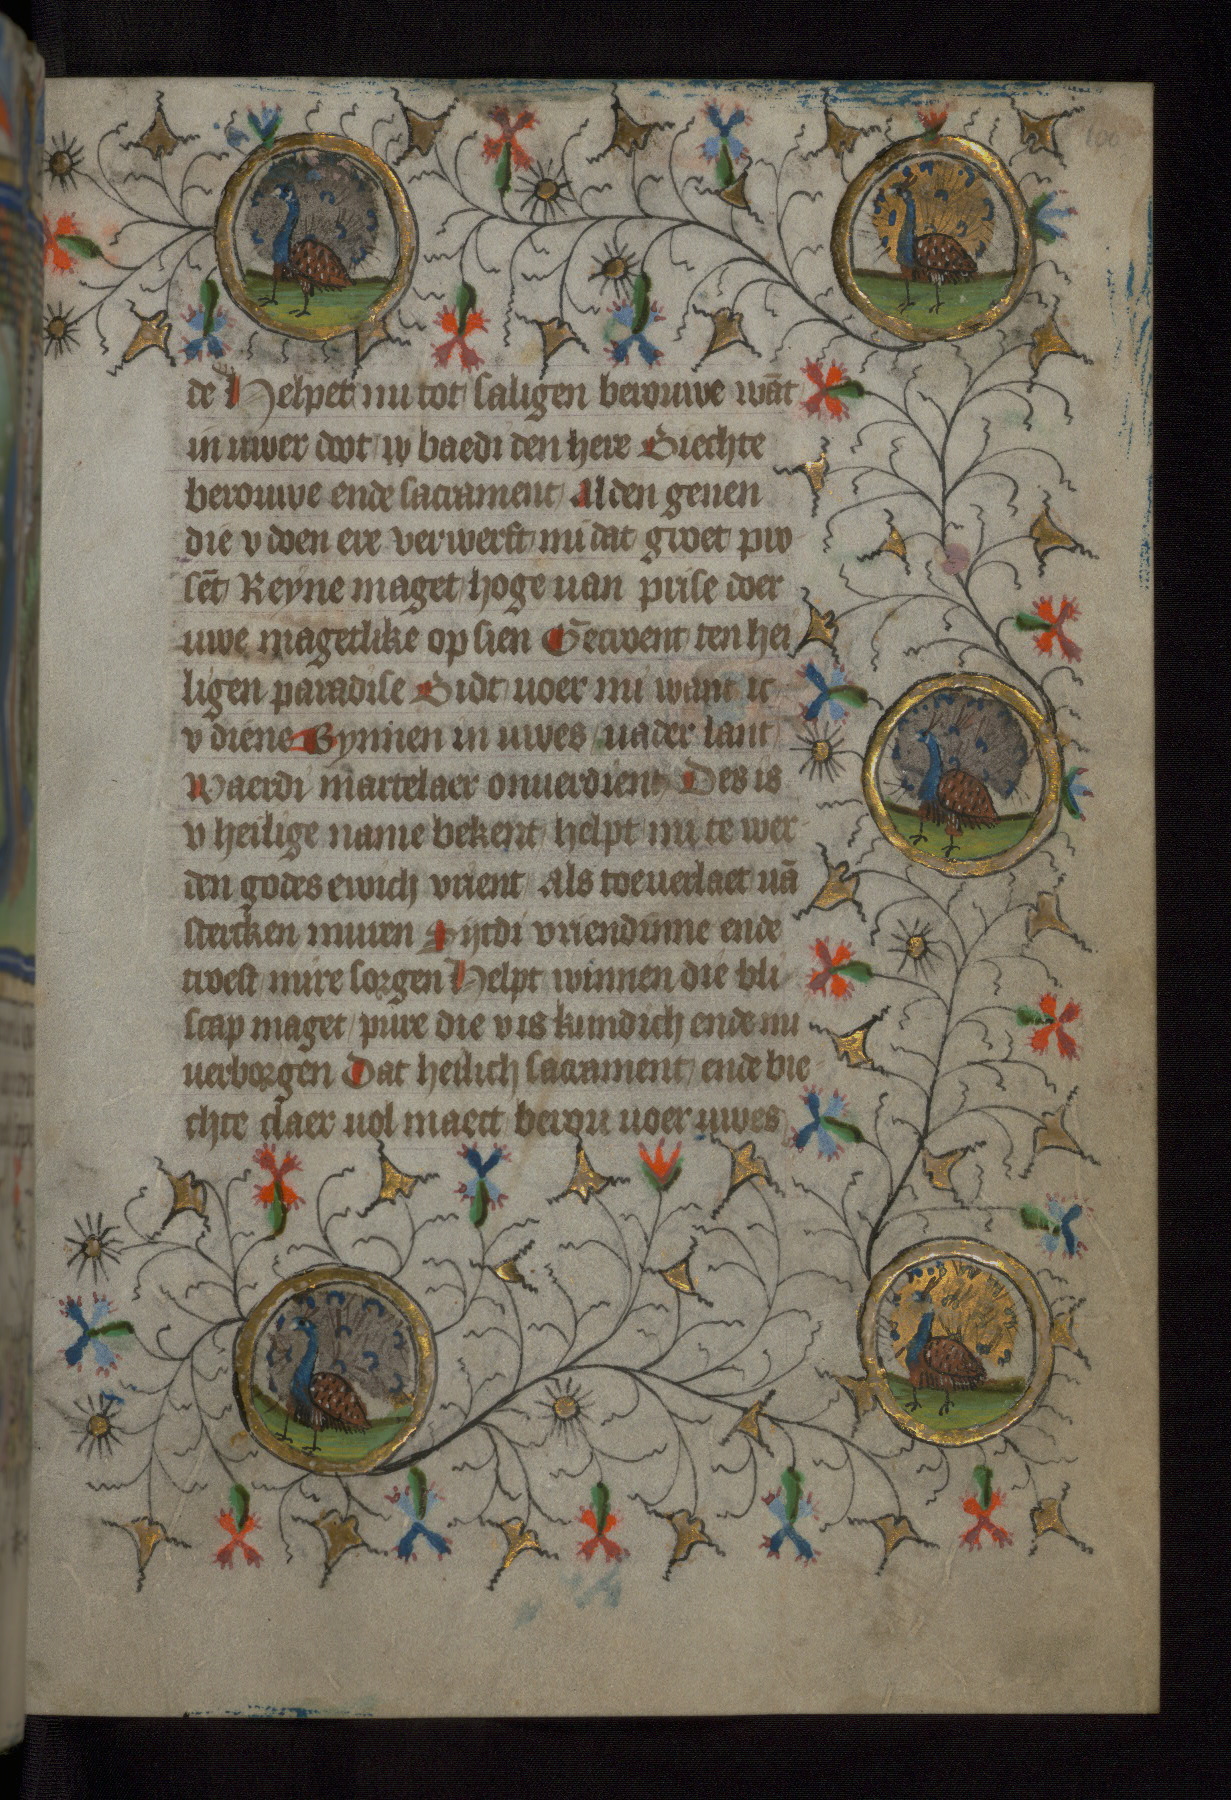 100
de Helpet mi tot saligen berouwe wāt
in uwer doot w baedi den here Biechte
berouwe ende sacrament Al den genen
die v doen ere verwerft mi dat groet pro
sēt Reyne maget hoge uan prise doer
uwe magetlike opsien Gecroent ten hei
ligen paradise Bidt uoer mi want ic
v diene Bynnen in uwes uader lant
Waerdi martelaer onuerdient Des is
v heilige name bekent helpt mi te wer
den godes ewich vrient Als toeuerlaet uā
stercken muren Sijtdi vriendinne ende
troest mire sorgen Helpt winnen die bli
scap maget pure die v is kundich ende mi
uerborgen Dat heilich sacrament ende bie
chte claer uol maect berou uoer uwes